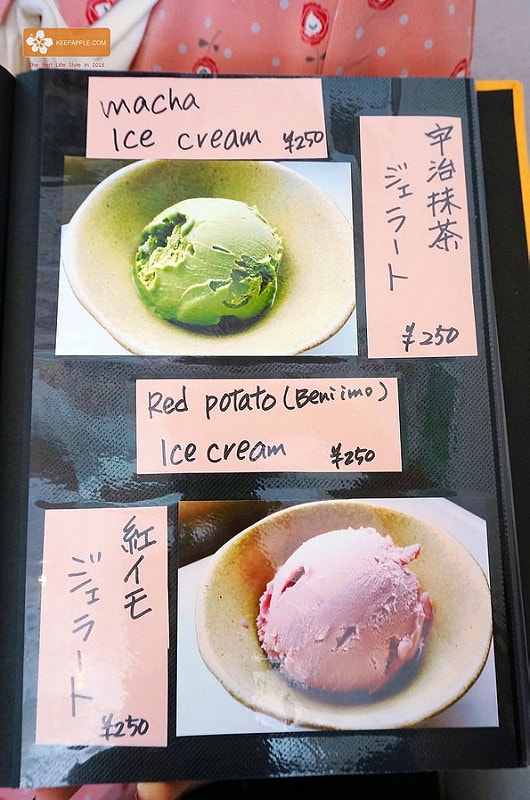 KEEPAPPLE.COM
The Best Life Style In 2015
macha
Ice cream ¥250
宇治抹茶
ジェラート
¥250
Red potato (Beniimo)
Ice cream ¥250
紅イモ
ジェラート
¥250